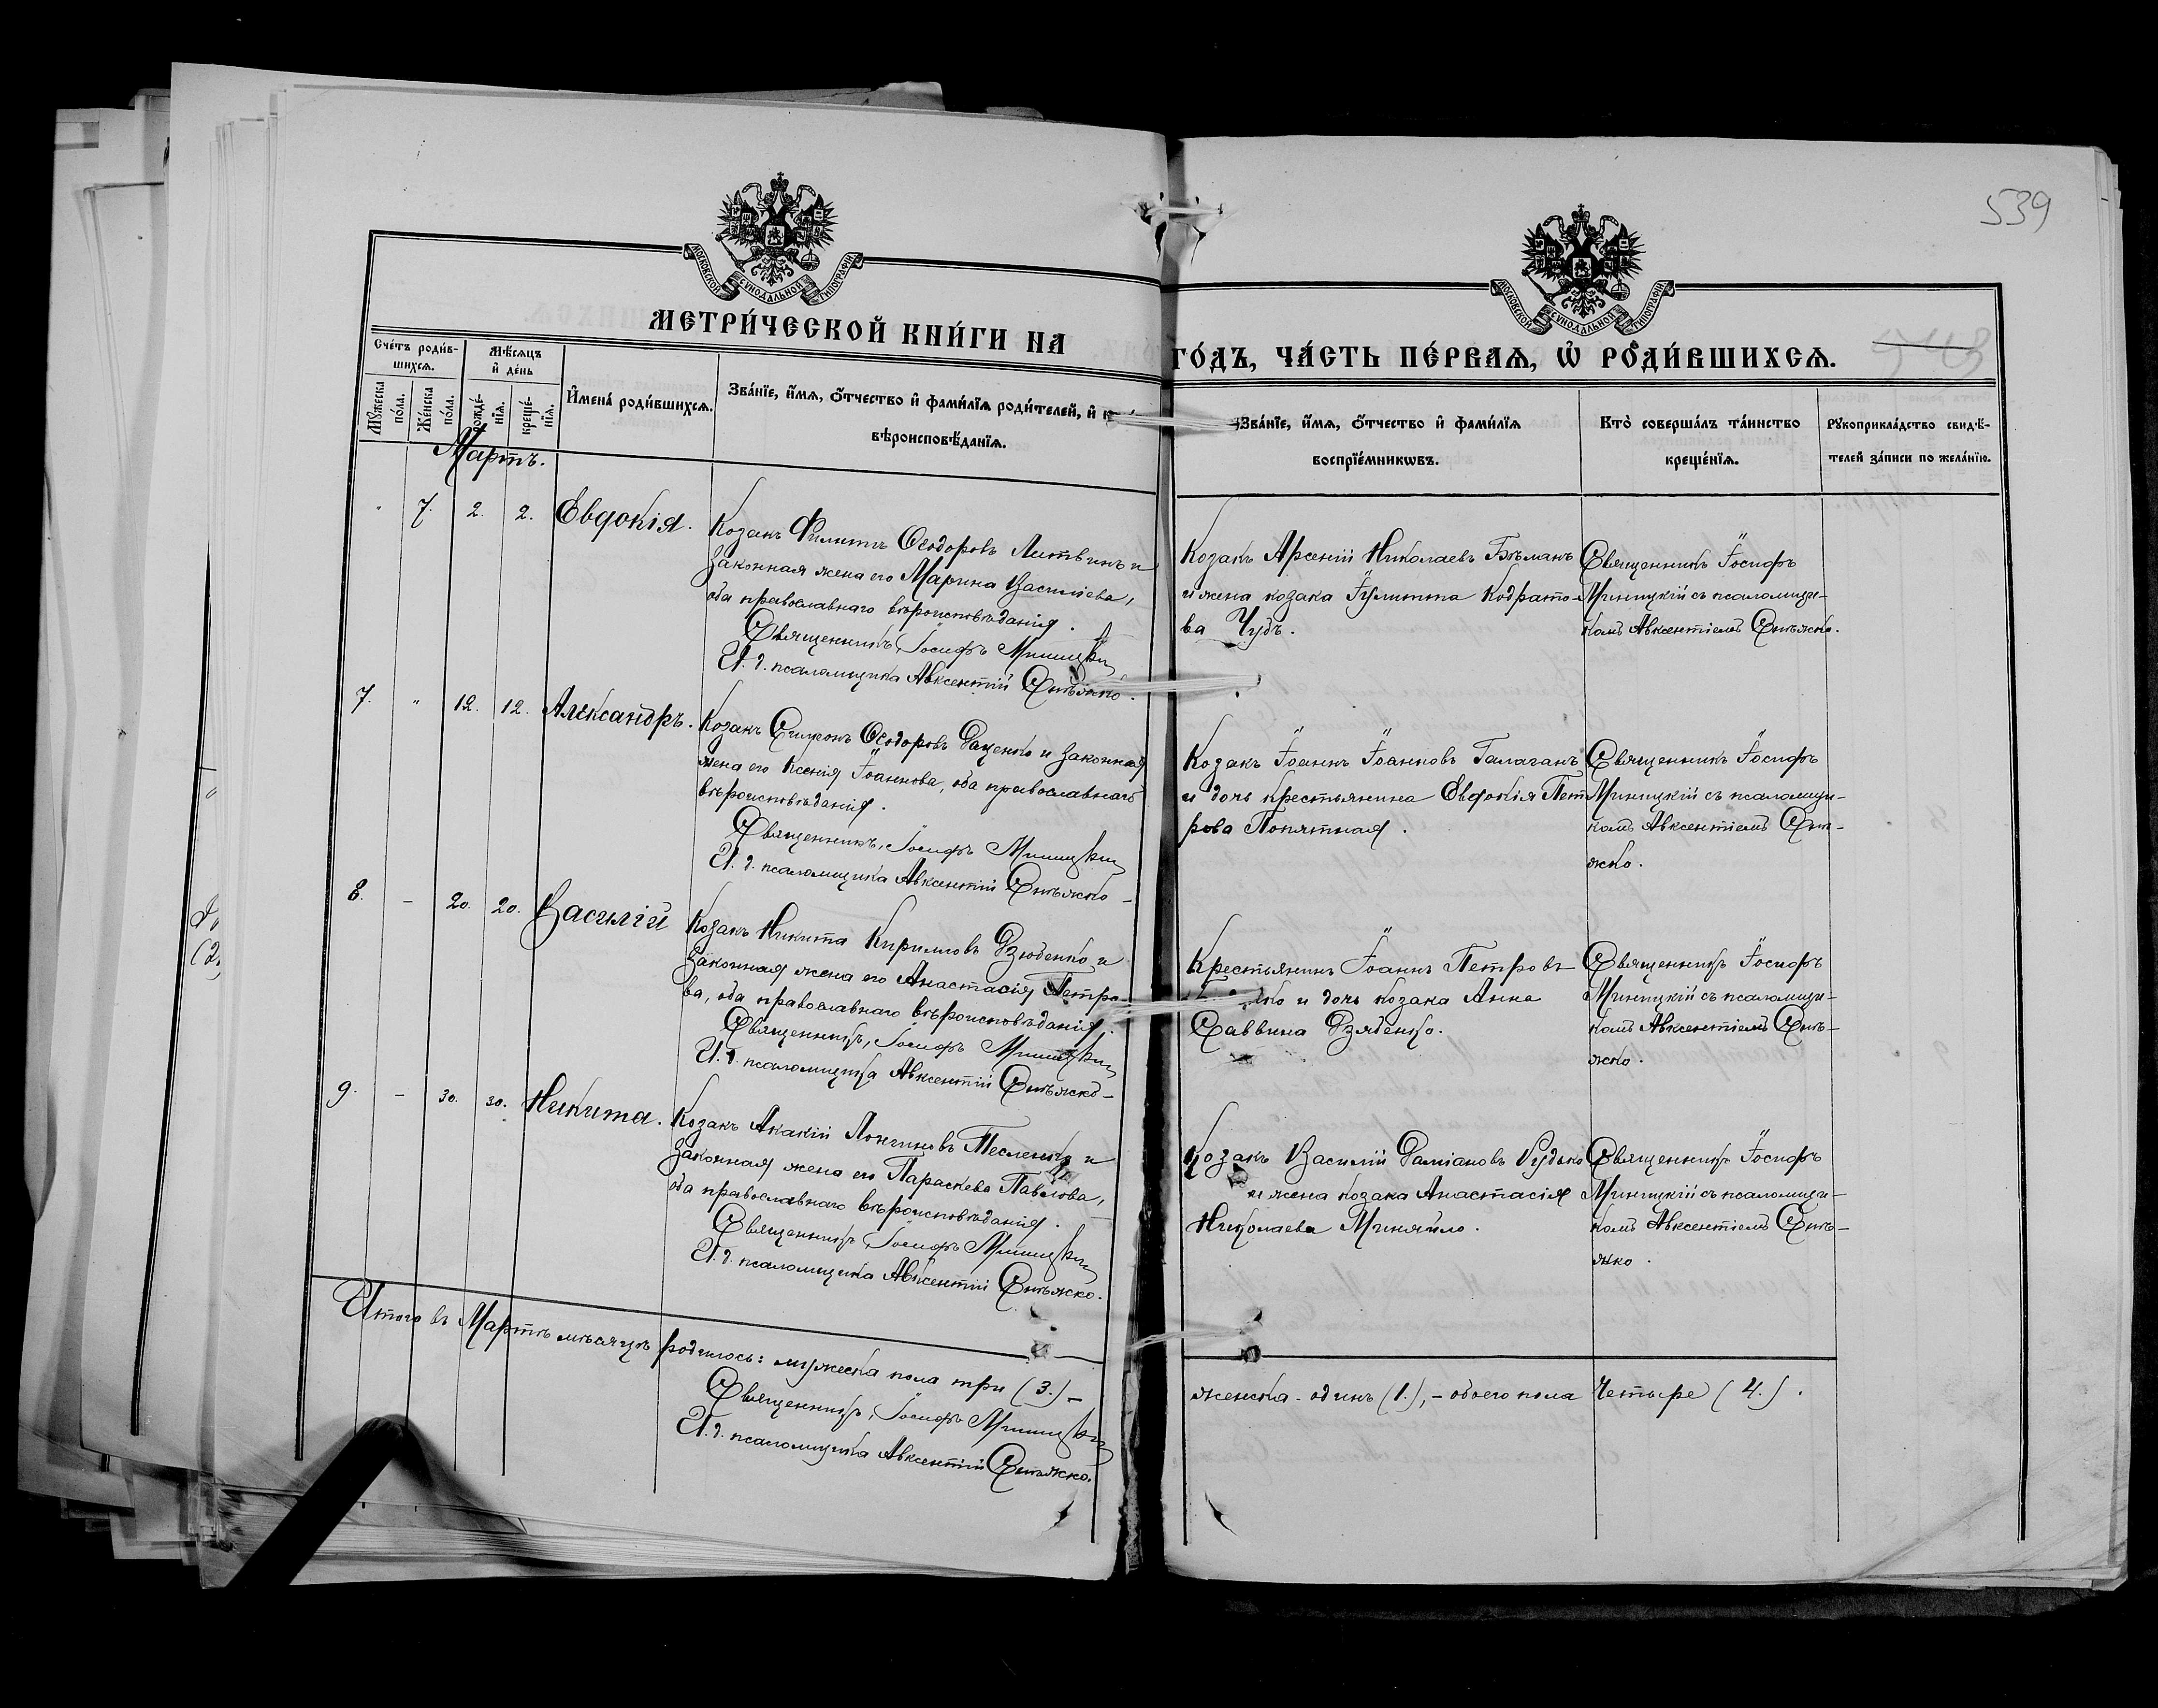 539
МОСКОВСКОЙ СУНОДАЛЬНОЙ ТИПОГРАФІИ
МОСКОВСКОЙ СУНОДАЛЬНОЙ ТИПОГРАФІИ
МЕТРИ́ЧЕСКОЙ КНИ́ГИ НА
ГО́ДЪ, ЧА́СТЬ ПЕ́РВАѦ, Ѡ҆ РОДИ́ВШИХСѦ.
Сче́тъ роди́в-
шихсѧ.
Мѣ́сѧцъ
и҆ де́нь
Мꙋ́жеска
по́ла.
Же́нска
по́ла.
рожде́-
нїѧ.
креще́-
нїѧ.
И҆мена̀ роди́вшихсѧ.
Зва́нїе, и҆́мѧ, ѻ҆́тчество и҆ фами́лїѧ роди́телей, и҆ к
вѣроисповѣ́данїѧ.
Зва́нїе, и҆́мѧ, ѻ҆́тчество и҆ фами́лїѧ
воспрїе́мникѡвъ.
Кто̀ соверша́лъ та́инство
креще́нїѧ.
Рꙋкоприкла́дство свидѣ́-
телей за́писи по жела́нїю.
Мартъ.
" 7. 2. 2. Евдокія.
Козакъ Филиппъ Ѳеодоровъ Литвинъ и
законная жена его Марина Васильева,
оба православнаго вѣроисповѣданія.
Священникъ, Іосифъ Миницкій
И. д. псаломщика Авксентій Снѣжко.
Козакъ Арсеній Николаевъ Бѣманъ
и жена козака Іулитта Кодрато-
ва Чубъ.
Священникъ Іосифъ
Миницкій съ псаломщи-
комъ Авксентіемъ Снѣжко.
7. " 12. 12. Александръ.
Козакъ Симеонъ Ѳеодоровъ Даценко и законная
жена его Ксенія Іоаннова, оба православнаго
вѣроисповѣданія.
Священникъ, Іосифъ Миницкій
И. д. псаломщика Авксентій Снѣжко -
Козакъ Іоаннъ Іоанновъ Галаганъ
и дочь крестьянина Евдокія Пет
рова Попятная.
Священникъ Іосифъ
Миницкій съ псаломщи-
комъ Авксентіемъ Снѣ-
жко.
8. - 20. 20. Василій
Козакъ Никита Кирилловъ Дзюбенко и
законная жена его Анастасія Петро-
ва, оба православнаго вѣроисповѣданія.
Священникъ, Іосифъ Миницкій
И. д. псаломщика Авксентій Снѣжко -
Крестьянинъ Іоаннъ Петровъ
ко и дочь козака Анна
Саввина Дзябенко.
Священникъ Іосифъ
Миницкій съ псаломщи-
комъ Авксентіемъ Снѣ-
жко.
9. - 30. 30. Никита.
Козакъ Акакій Лонгиновъ Тесленко и
законная жена его Параскева Павлова,
оба православнаго вѣроисповѣданія.
Священникъ, Іосифъ Миницкій
И. д. псаломщика Авксентій Снѣжко.
Козакъ Василій Даміановъ Рудько
и жена козака Анастасія
Николаева Миняйло.
Священникъ Іосифъ
Миницкій съ псаломщи-
комъ Авксентіемъ Снѣ-
жко.
Итого въ Мартѣ мѣсяцѣ родилось: мужеска пола три (3.) -
женска - одинъ (1.), - обоего пола Четыре (4.).
Священникъ, Іосифъ Миницкій
И. д. псаломщика Авксентій Снѣжко.